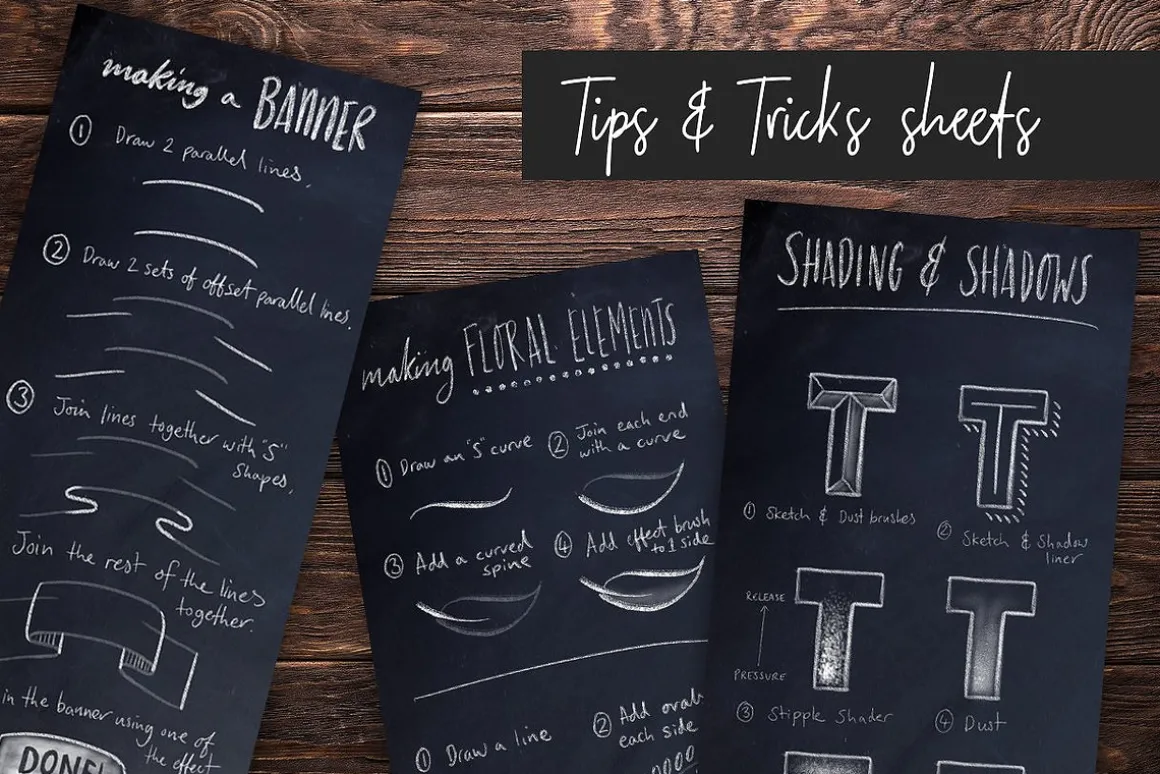 Tips & Tricks sheets
making a BANNER
① Draw 2 parallel lines.
② Draw 2 sets of offset parallel lines.
③ Join lines together with "S"
shapes.
Join the rest of the lines
together.
in the banner using one of
the effect
DONE!
making FLORAL ELEMENTS
① Draw an "S" curve
② Join each end
with a curve
③ Add a curved
spine
④ Add effect brush
to 1 side
① Draw a line
② Add ovals
each side
SHADING & SHADOWS
T
T
① Sketch & Dust brushes
② Sketch & Shadow
liner
RELEASE
PRESSURE
T
T
③ Stipple Shader
④ Dust